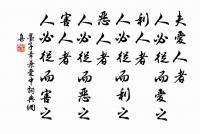 夫愛人者
人必從而愛之
利人者
人必從而利之
惡人者
人必從而惡之
害人者
人必從而害之
墨子兼愛中詞典網
集